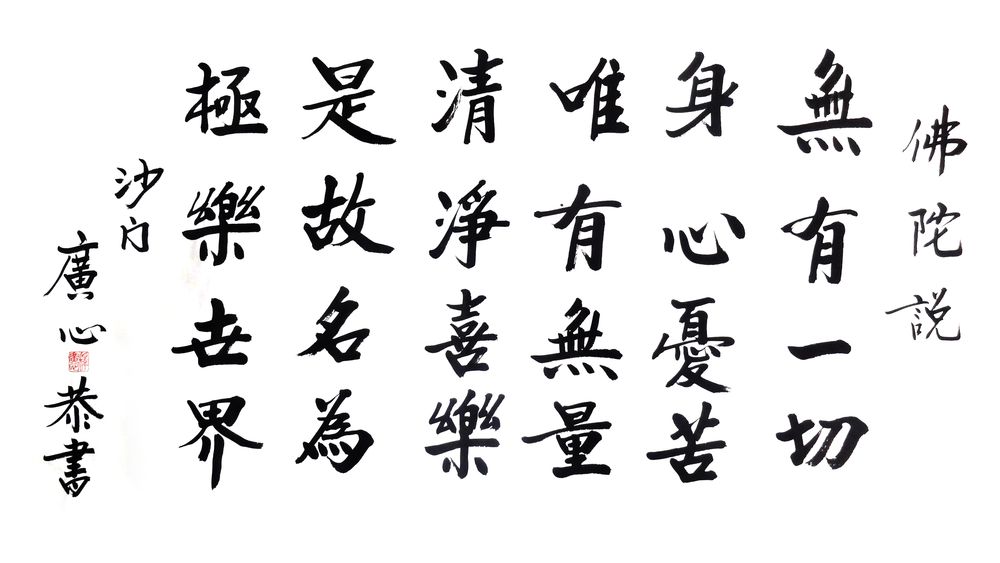 佛陀說
無有一切
身心憂苦
唯有無量
清淨喜樂
是故名為
極樂世界
沙門
廣心恭書